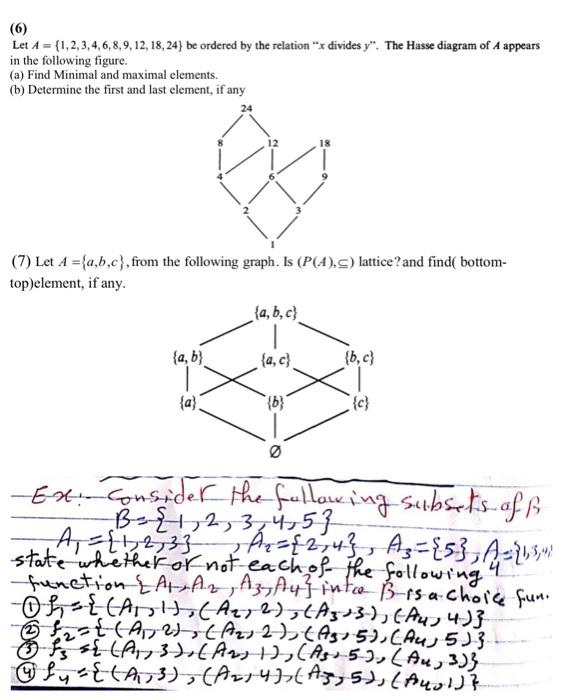 (6)
Let A = {1, 2, 3, 4, 6, 8, 9, 12, 18, 24} be ordered by the relation "x divides y". The Hasse diagram of A appears
in the following figure.
(a) Find Minimal and maximal elements.
(b) Determine the first and last element, if any
24
8 12 18
4 6 9
2 3
1
(7) Let A ={a,b,c}, from the following graph. Is (P(A),⊆) lattice? and find( bottom-
top)element, if any.
{a, b, c}
{a, b} {a, c} {b, c}
{a} {b} {c}
Ø
Ex:- Consider the following subsets of B
B={1,2,3,4,5}
A₁={1,2,3}, A₂={2,4}, A₃={5}, A₄={1,3,4}
state whether or not each of the following
function {A₁,A₂,A₃,A₄} into B is a choice fun.
① f₁={(A₁,1),(A₂,2),(A₃,3),(A₄,4)}
② f₂={(A₁,2),(A₂,2),(A₃,5),(A₄,5)}
③ f₃={(A₁,3),(A₂,1),(A₃,5),(A₄,3)}
④ f₄={(A₁,3),(A₂,4),(A₃,5),(A₄,1)}